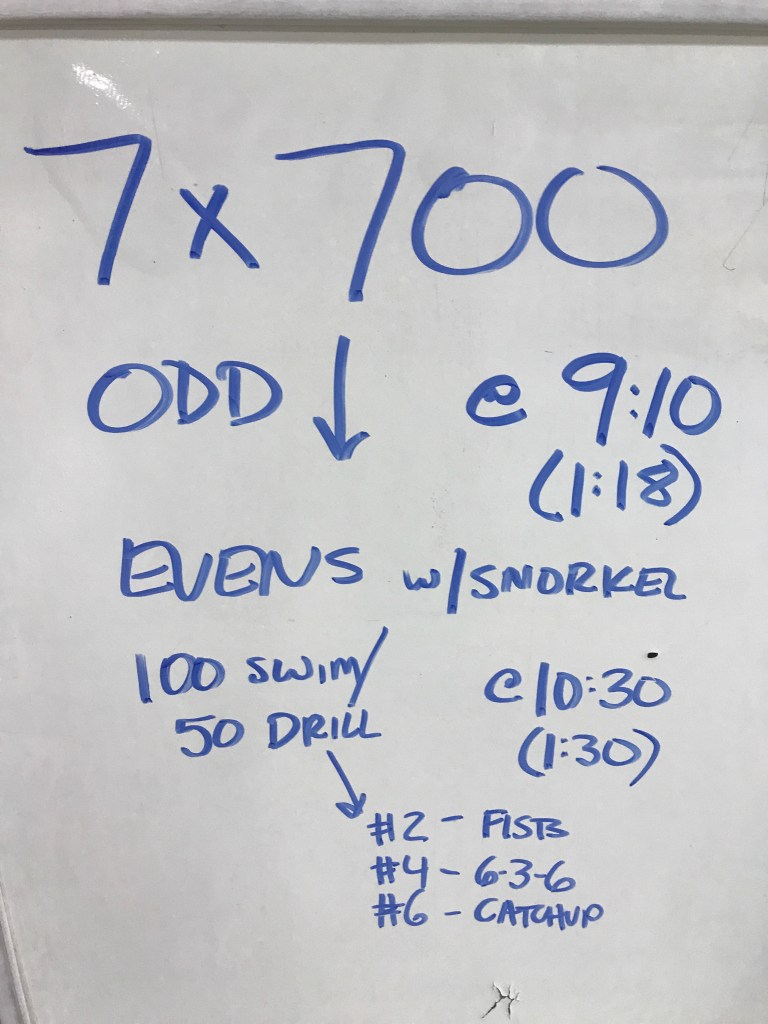 7 x 700
ODD ↓ @ 9:10
(1:18)
EVENS w/SNORKEL
100 SWIM/ @ 10:30
50 DRILL (1:30)
#2 - FISTS
#4 - 6-3-6
#6 - CATCHUP